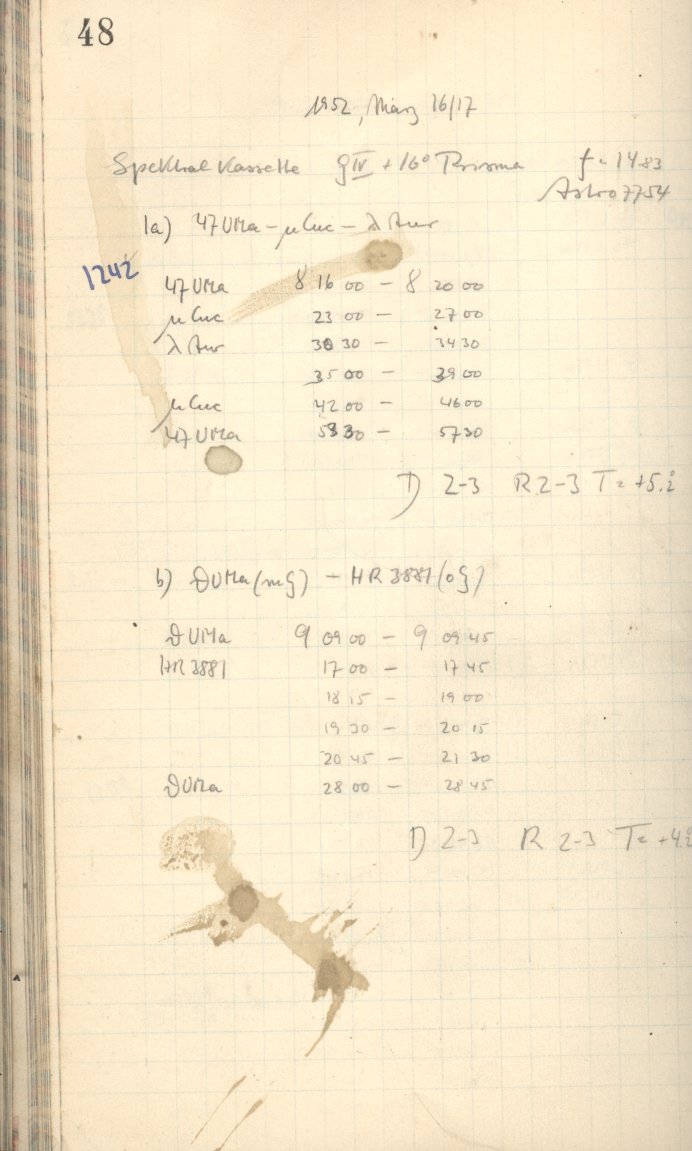 48
1952, März 16/17
Spektralkassette g IV + 16° Prisma f = 14.83
Astro 7754
1a) 47 UMa - μ Cnc - λ Aur
1242
47 UMa 8 16 00 - 8 20 00
μ Cnc 23 00 - 27 00
λ Aur 30 30 - 34 30
35 00 - 39 00
μ Cnc 42 00 - 46 00
47 UMa 53 30 - 57 30
D 2-3 R 2-3 T = +5.
b) ϑ UMa (mg) - HR 3881 (og)
ϑ UMa 9 09 00 - 9 09 45
HR 3881 17 00 - 17 45
18 15 - 19 00
19 30 - 20 15
20 45 - 21 30
ϑ UMa 28 00 - 28 45
D 2-3 R 2-3 T = +4.